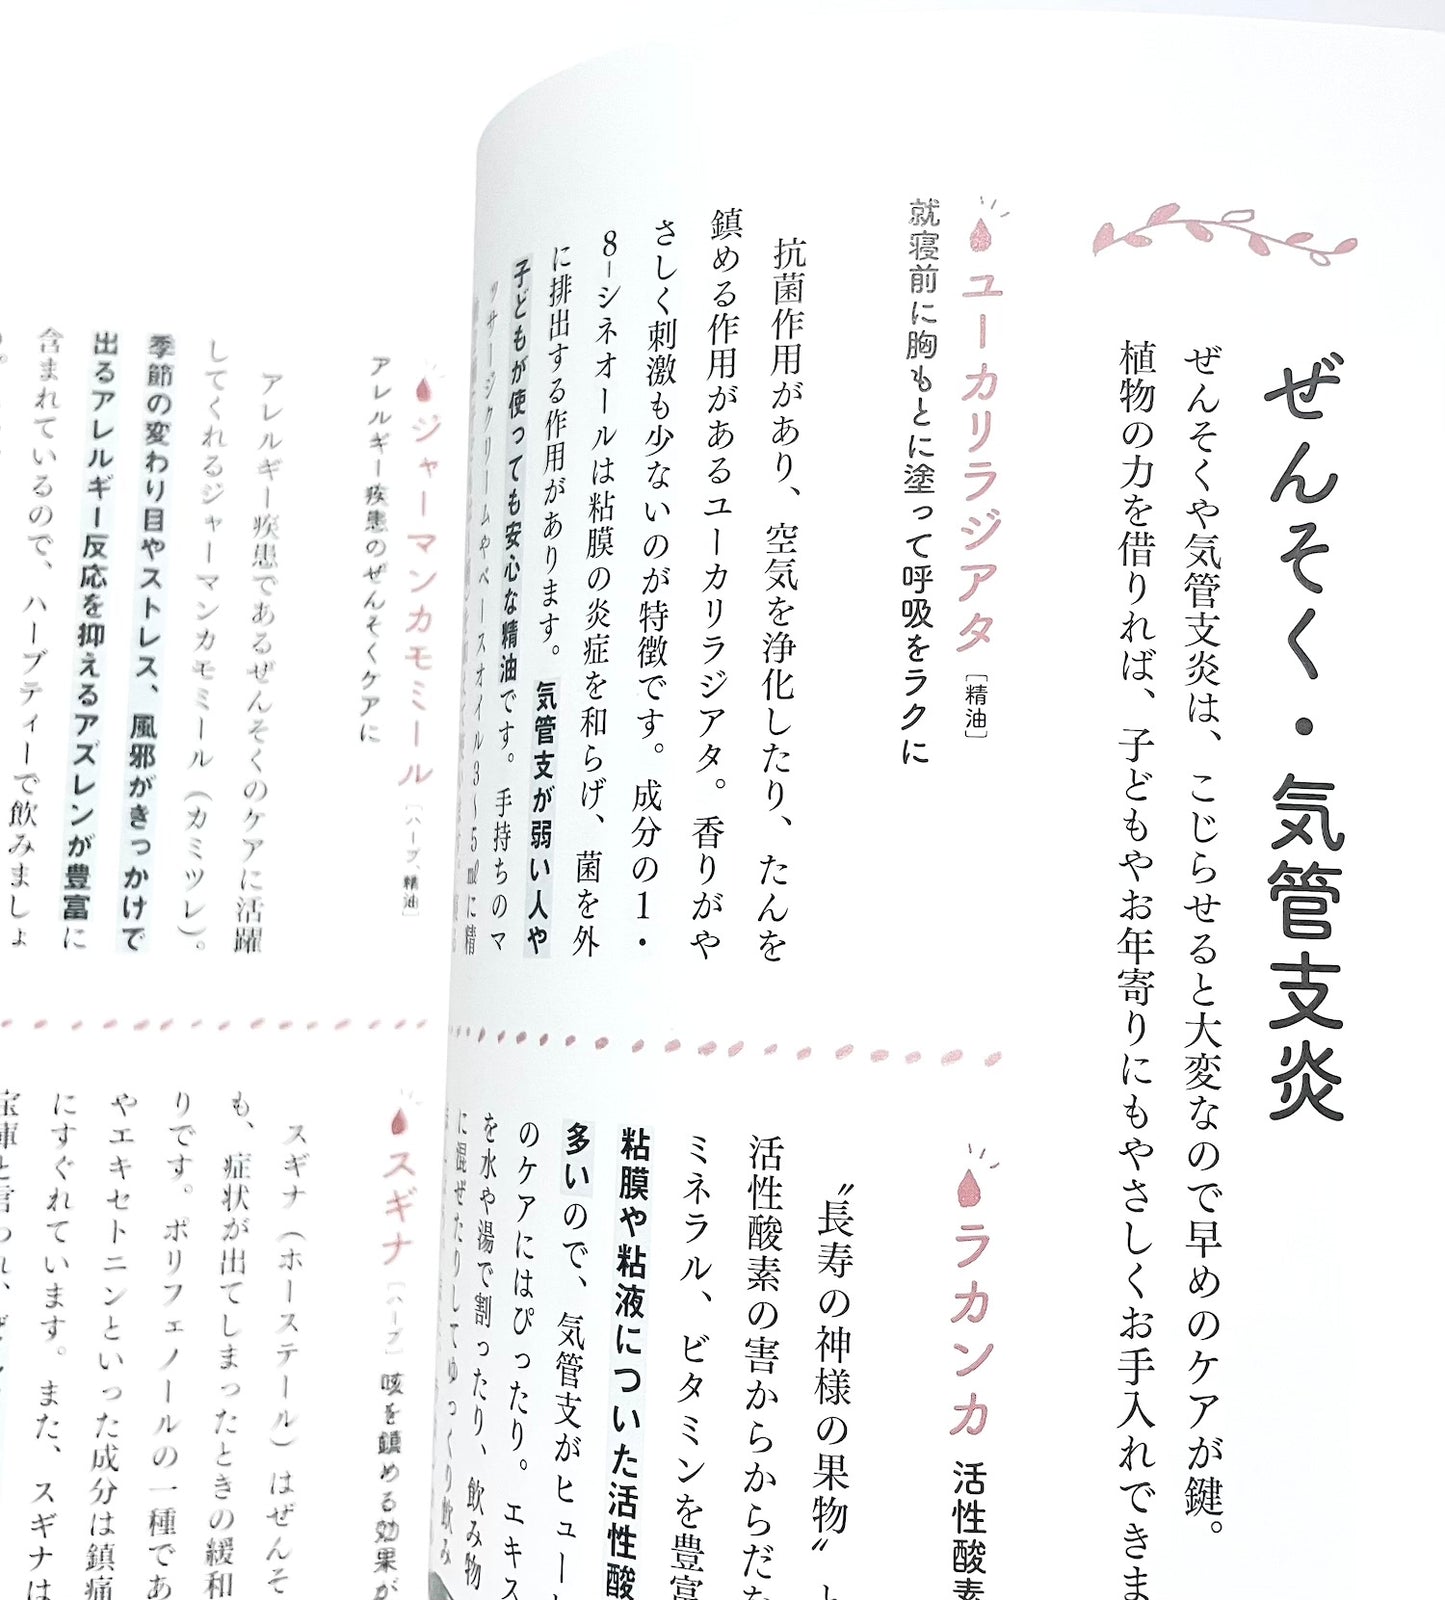 ぜんそく・気管支炎
ぜんそくや気管支炎は、こじらせると大変なので早めのケアが鍵。
植物の力を借りれば、子どもやお年寄りにもやさしくお手入れできま
ユーカリラジアタ［精油］
就寝前に胸もとに塗って呼吸をラクに
抗菌作用があり、空気を浄化したり、たんを
鎮める作用があるユーカリラジアタ。香りがや
さしく刺激も少ないのが特徴です。成分の1・
8-シネオールは粘膜の炎症を和らげ、菌を外
に排出する作用があります。気管支が弱い人や
子どもが使っても安心な精油です。手持ちのマ
ッサージクリームやベースオイル3〜5㎖に精
ラカンカ 活性酸素
〝長寿の神様の果物〟
活性酸素の害からからだを
ミネラル、ビタミンを豊富
粘膜や粘液についた活性酸
多いので、気管支がヒュー
のケアにはぴったり。エキス
を水や湯で割ったり、飲み物
に混ぜたりしてゆっくり飲み
ジャーマンカモミール［ハーブ、精油］
アレルギー疾患のぜんそくケアに
アレルギー疾患であるぜんそくのケアに活躍
してくれるジャーマンカモミール（カミツレ）。
季節の変わり目やストレス、風邪がきっかけで
出るアレルギー反応を抑えるアズレンが豊富に
含まれているので、ハーブティーで飲みましょ
スギナ［ハーブ］咳を鎮める効果が
スギナ（ホーステール）はぜんそ
も、症状が出てしまったときの緩和
りです。ポリフェノールの一種であ
やエキセトニンといった成分は鎮痛
にすぐれています。また、スギナは
宝庫と言われ、